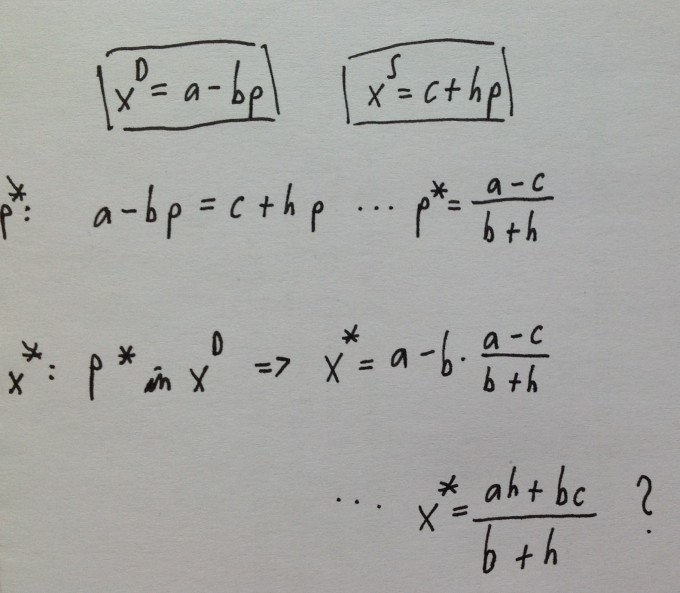 x^D = a - bp   x^S = c + hp
p*: a - bp = c + hp ... p* = (a - c)/(b + h)
x*: p* in x^D => x* = a - b · (a - c)/(b + h)
... x* = (ah + bc)/(b + h) ?